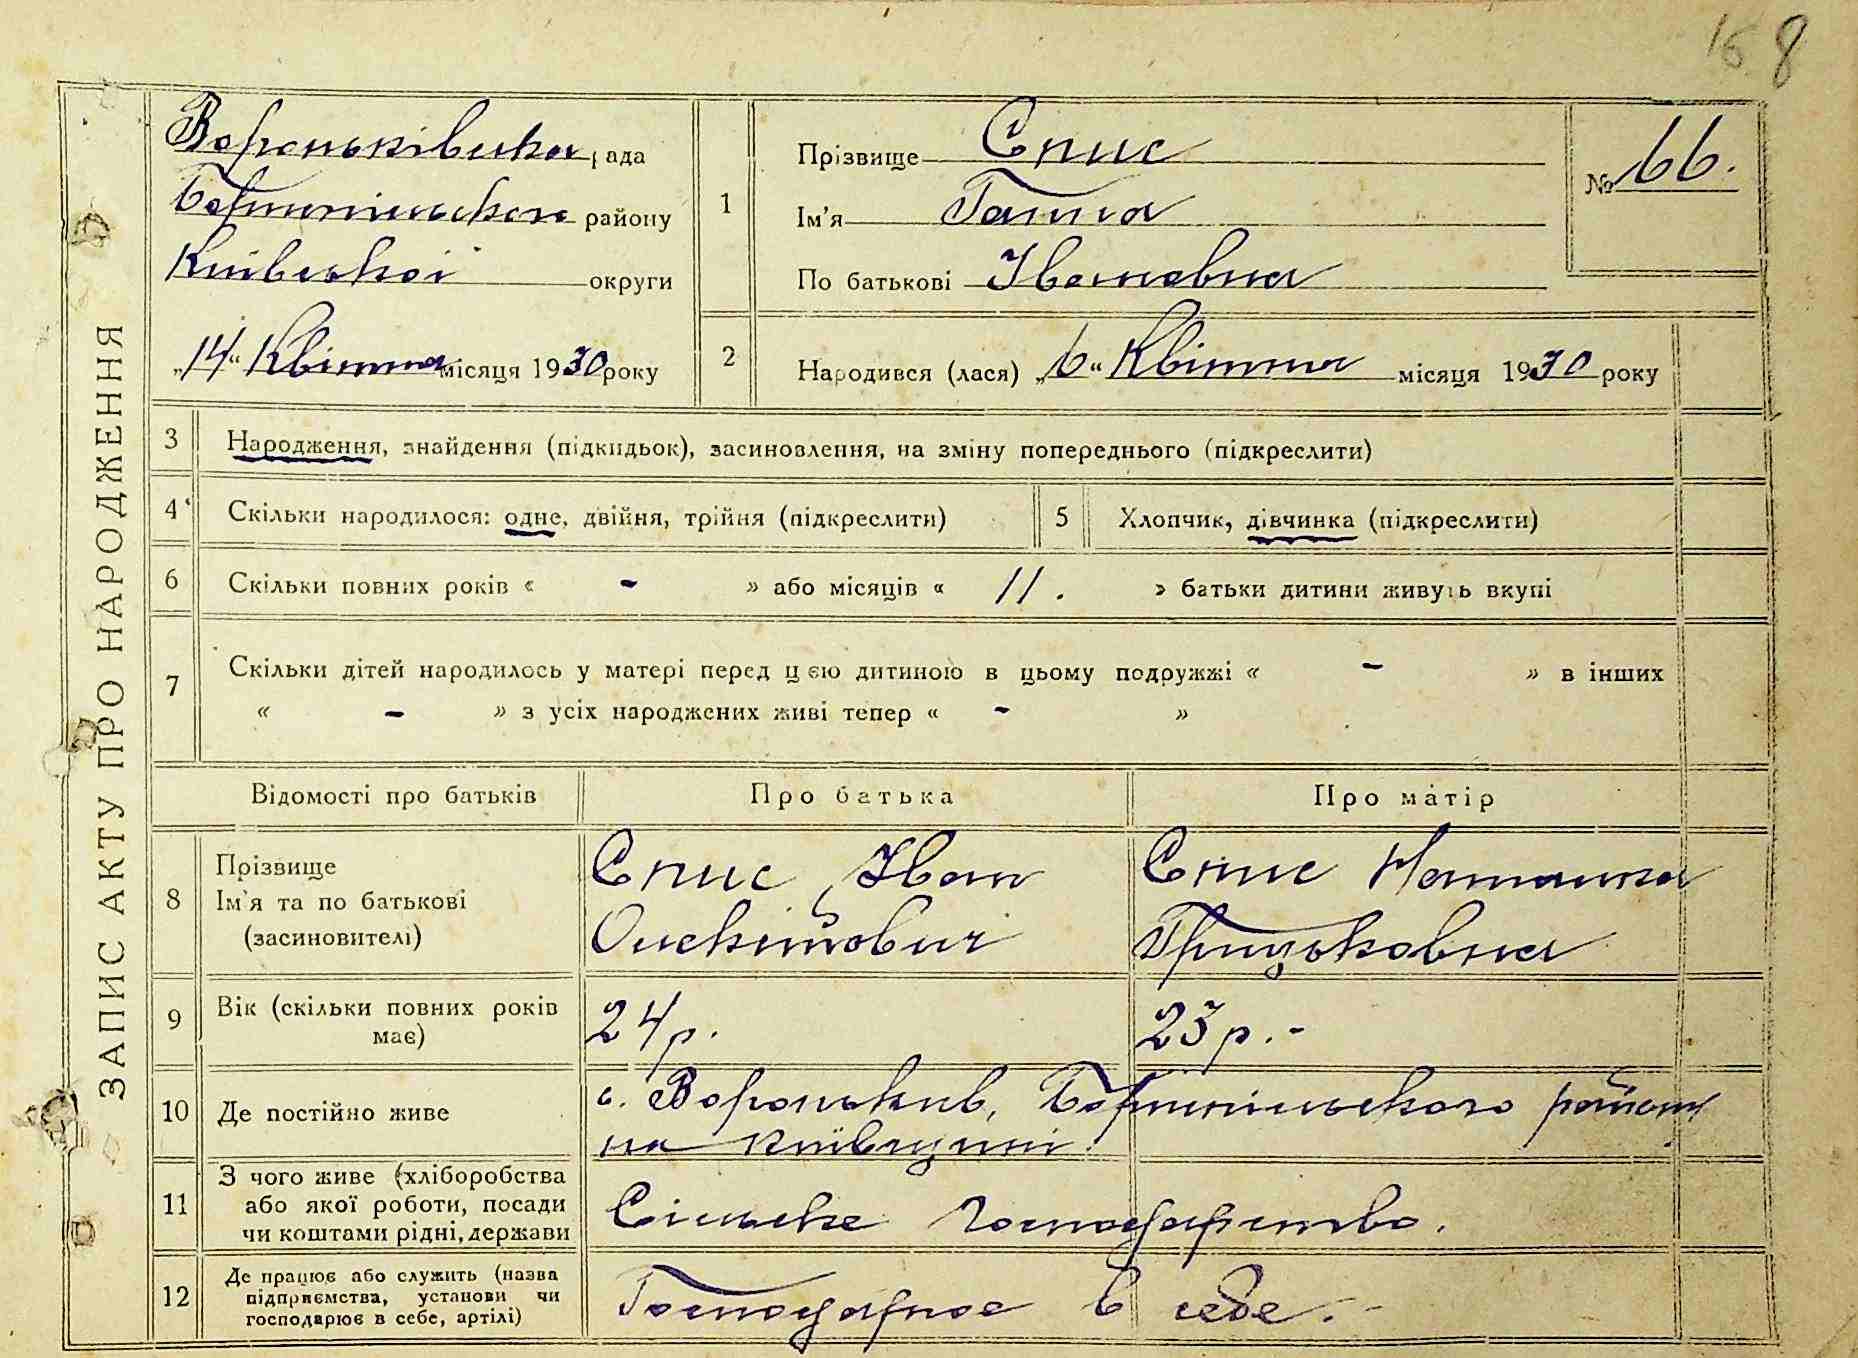 168
ЗАПИС АКТУ ПРО НАРОДЖЕННЯ
Вороньківська рада
Бориспільського району
Київської округи
„14“ Квітня місяця 1930 року
1
Прізвище Спис
Ім'я Ганна
По батькові Івановна
№ 66.
2
Народився (лася) „6“ Квітня місяця 1930 року
3 Народження, знайдення (підкидьок), засиновлення, на зміну попереднього (підкреслити)
4 Скільки народилося: одне, двійня, трійня (підкреслити) 5 Хлопчик, дівчинка (підкреслити)
6 Скільки повних років « - » або місяців « 11. » батьки дитини живуть вкупі
7 Скільки дітей народилось у матері перед цією дитиною в цьому подружжі « - » в інших
« - » з усіх народжених живі тепер « - »
Відомості про батьків Про батька Про матір
8 Прізвище
Ім'я та по батькові
(засиновителі)
Спис Іван
Спис Наталка
Грицьковна
9 Вік (скільки повних років
має)
24 р.
23 р. -
10 Де постійно живе
с. Вороньків, Бориспільського району
на Київщині.
11 З чого живе (хліборобства
або якої роботи, посади
чи коштами рідні, держави
Сільське господарство.
12 Де працює або служить (назва
підприємства, установи чи
господарює в себе, артілі)
Господарює в себе. -